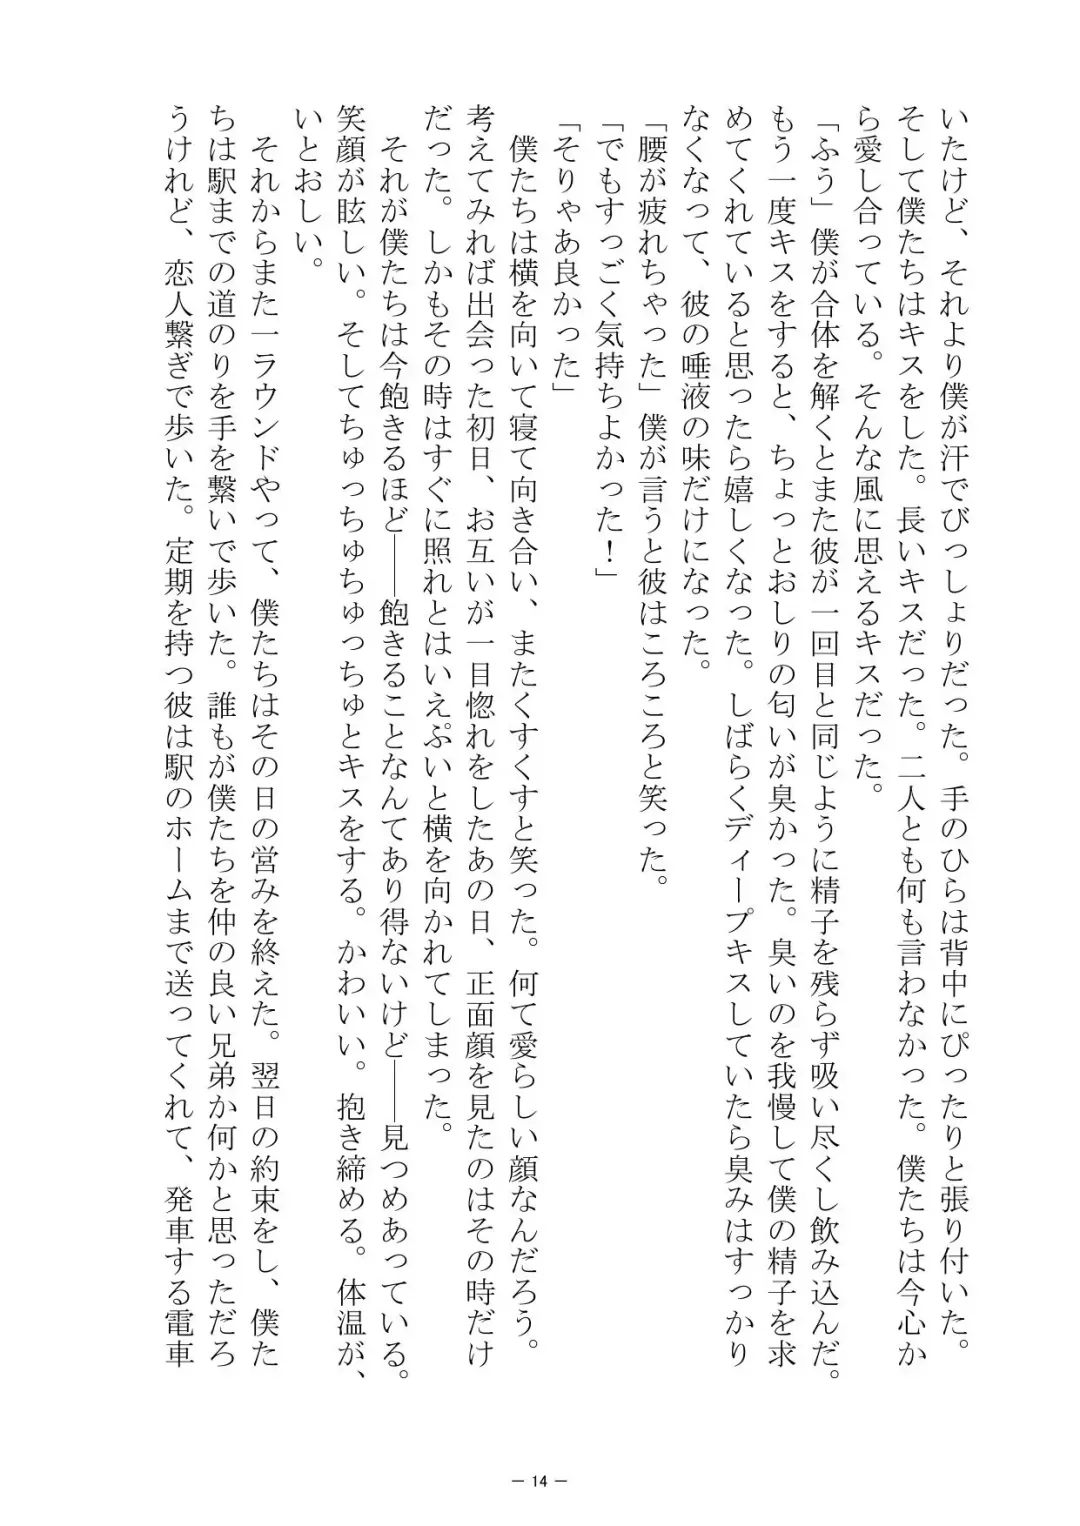 いたけど、それより僕が汗でびっしょりだった。手のひらは背中にぴったりと張り付いた。
そして僕たちはキスをした。長いキスだった。二人とも何も言わなかった。僕たちは今心か
ら愛し合っている。そんな風に思えるキスだった。
「ふう」僕が合体を解くとまた彼が一回目と同じように精子を残らず吸い尽くし飲み込んだ。
もう一度キスをすると、ちょっとおしりの匂いが臭かった。臭いのを我慢して僕の精子を求
めてくれていると思ったら嬉しくなった。しばらくディープキスしていたら臭みはすっかり
なくなって、彼の唾液の味だけになった。
「腰が疲れちゃった」僕が言うと彼はころころと笑った。
「でもすっごく気持ちよかった！」
「そりゃあ良かった」
僕たちは横を向いて寝て向き合い、またくすくすと笑った。何て愛らしい顔なんだろう。
考えてみれば出会った初日、お互いが一目惚れをしたあの日、正面顔を見たのはその時だけ
だった。しかもその時はすぐに照れとはいえぷいと横を向かれてしまった。
それが僕たちは今飽きるほど――飽きることなんてあり得ないけど――見つめあっている。
笑顔が眩しい。そしてちゅっちゅちゅっちゅとキスをする。かわいい。抱き締める。体温が、
いとおしい。
それからまた一ラウンドやって、僕たちはその日の営みを終えた。翌日の約束をし、僕た
ちは駅までの道のりを手を繋いで歩いた。誰もが僕たちを仲の良い兄弟か何かと思っただろ
うけれど、恋人繋ぎで歩いた。定期を持つ彼は駅のホームまで送ってくれて、発車する電車
－ 14 －